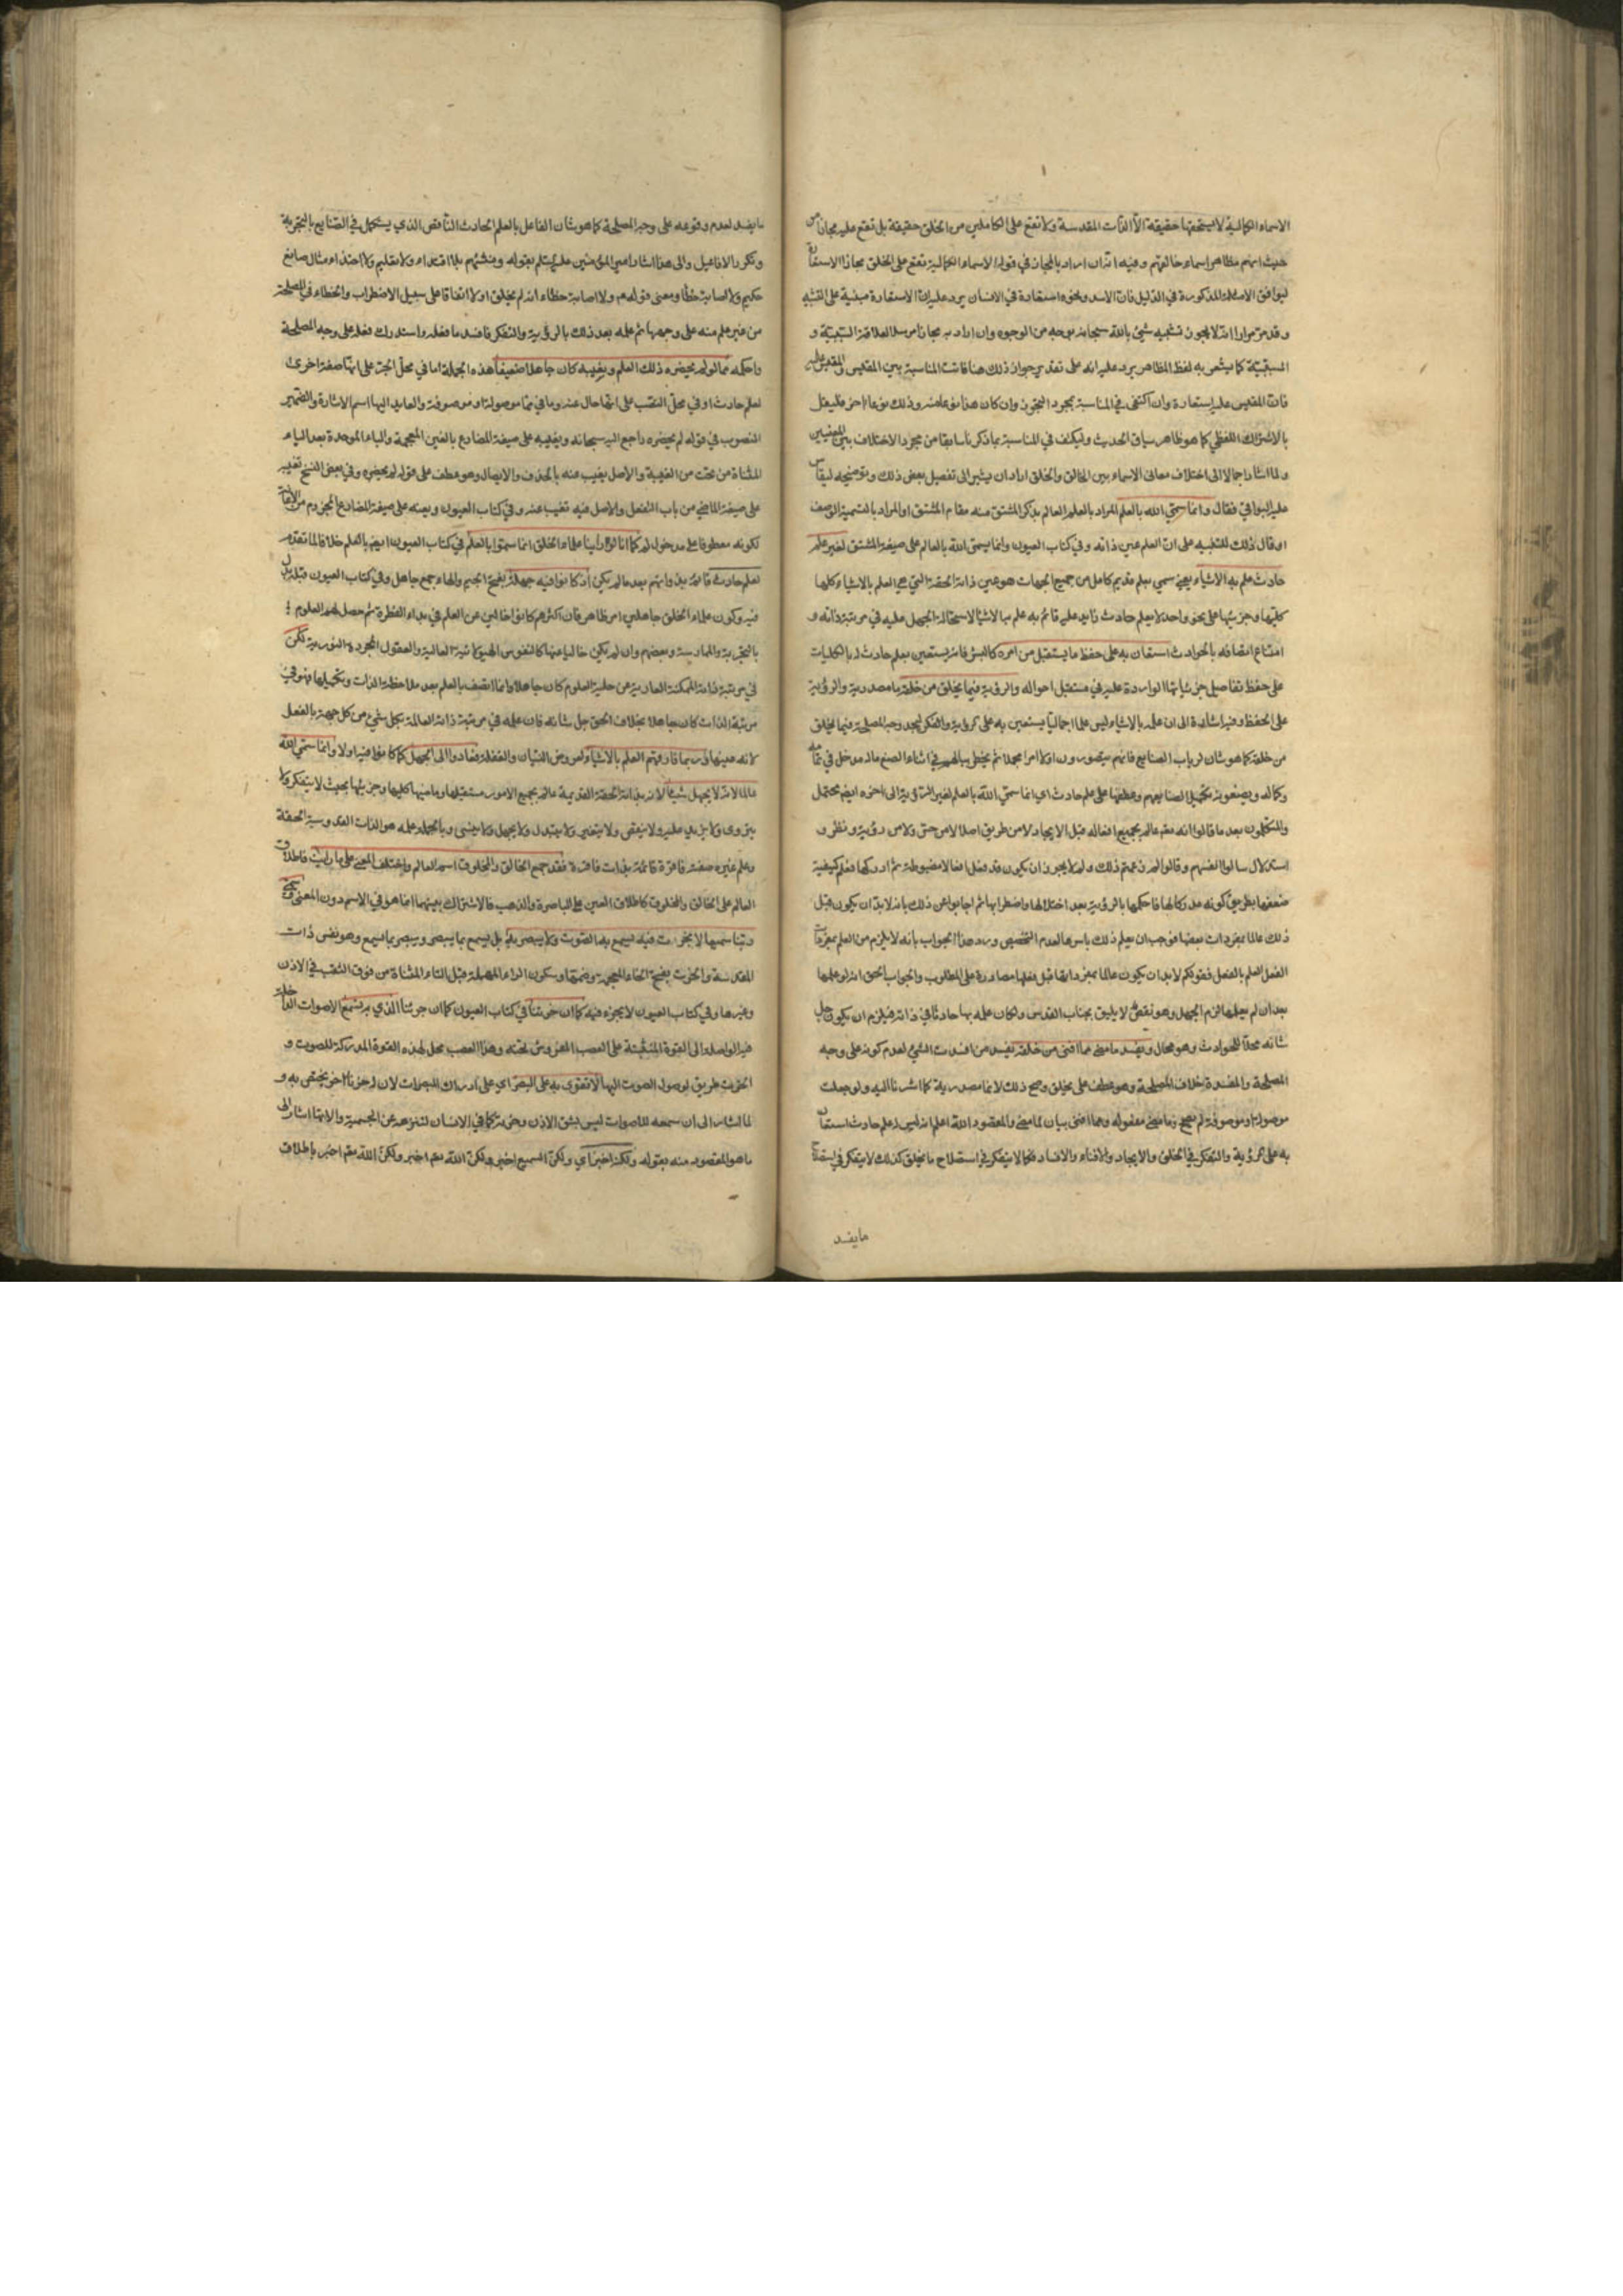 الاسماء الكمالية لا يستحقها حقيقة الا الذات المقدسة ولا تقع على الكاملين من الخلق حقيقة بل تقع عليهم مجازا من
حيث انهم مظاهر اسماء خالقهم وفيه انه ان اراد بالمجاز في قوله الاسماء الكمالية تقع على الخلق مجازا الاستعارة
ليوافق الامثلة المذكورة في الذليل فان الاسد ونحوه استعارة في الانسان يرد عليه ان الاستعارة مبنية على التشبيه
وقد مر مرارا انه لا يجوز تشبيه شيء بالله سبحانه بوجه من الوجوه وان اراد به مجازا مرسلا لعلاقة السببية و
المسببية كما يشعر به لفظ المظاهر يرد عليه انه على تقدير جواز ذلك هنا فاتت المناسبة بين المقيس والمقيس عليه
فان المقيس عليه استعارة وان اكتفى في المناسبة بمجرد التجوز وان كان هذا نوعا منه وذلك نوعا اخر فليقل
بالاشتراك اللفظي كما هو ظاهر سياق الحديث وليكتف في المناسبة بما ذكرنا سابقا من مجرد الاختلاف بين المعنيين
ولما اشار اجمالا الى اختلاف معاني الاسماء بين الخالق والخلق اراد ان يشير الى تفصيل بعض ذلك وتوضيحه ليقاس
عليه البواقي فقال وانما سمي الله بالعلم المراد بالعلم العالم بذكر المشتق منه مقام المشتق او المراد بالتسمية الوصف
او قال ذلك للتنبيه على ان العلم عين ذاته وفي كتاب العيون وانما يسمى الله بالعالم على صيغة المشتق لغير علم
حادث علم به الاشياء يعني سمي بعلم قديم كامل من جميع الجهات هو عين ذاته الحقة التي هي العلم بالاشياء كلها
كليها وجزئيها على نحو واحد لا بعلم حادث زايد عليه قائم به علم به الاشياء لاستحالة الجهل عليه في مرتبة ذاته و
امتناع اتصافه بالحوادث استعان به على حفظ ما يستقبل من امره كالبشر فانه يستعين بعلم حادث له بالكليات
على حفظ تفاصيل جزئياتها الواردة عليه في مستقبل احواله والروية فيما يخلق من خلقه ما مصدرية والروية
على الحفظ وفيه اشارة الى ان علمه بالاشياء ليس علما اجماليا يستعين به على الروية والفكر ليجد وجه المصلحة فيما يخلق
من خلقه كما هو شان ارباب الصنايع فانهم يتصورون اولا امرا مجملا ثم يخطر ببالهم في اثناء الصنع ما له مدخل في تمامه
وكماله ويصنعونه تكميلا لصنايعهم وعطفها على علم حادث اي انما سمي الله بالعالم لغير الروية الى اخره ايضا محتمل
والمتكلمون بعد ما قالوا انه تعالى عالم بجميع افعاله قبل الايجاد لا من طريق اصلا لا من حس ولا من روية ونظر و
استدلال سالوا انفسهم وقالوا لم زعمتم ذلك ولم لا يجوز ان يكون قد فعل افعالا مضبوطة ثم ادركها فعلم كيفية
صنعها بطريق كونه مدركا لها فاحكمها بالروية بعد اختلالها واضطرابها ثم اجابوا عن ذلك بانه لا بد ان يكون قبل
ذلك عالما بمفردات بعضها فوجب ان يعلم ذلك باسرها لعدم التخصيص ورد هذا الجواب بانه لا يلزم من العلم بمفردات
الفعل العلم بالفعل فقولكم لا بد ان يكون عالما بمفرداتها قبل فعلها مصادرة على المطلوب والجواب الحق انه لو علمها
بعد ان لم يعلمها لزم الجهل وهو نقص لا يليق بجناب القدس ولكان علمه بها حادثا في ذاته فيلزم ان يكون جل
شانه محلا للحوادث وهو محال ويفسد ما مضى مما افنى من خلقه يفسد من افسدت الشيء لعدم كونه على وجه
المصلحة والمفسدة خلاف المصلحة وهو عطف على يخلق وصح ذلك لان ما مصدرية كما اشرنا اليه ولو جعلت
موصولة او موصوفة لم يصح وما مضى مفعوله ومما افنى بيان لما مضى والمقصود الله اعلم انه ليس له علم حادث استعان
به على الروية والتفكر في الخلق والايجاد والافناء والافساد فكما لا يتفكر في استصلاح ما يخلق كذلك لا يتفكر في
ما يفسد
ما يفسد لعدم وقوعه على وجه المصلحة كما هو شان الفاعل بالعلم الحادث الناقص الذي يستكمل في الصنايع بالتجربة
وتكرر الافاعيل والى هذا اشار امير المؤمنين عليه السلم بقوله ومنشئهم بلا اقتداء ولا تعليم ولا احتذاء مثال صانع
حكيم ولا اصابة خطأ ومعنى قوله ولا اصابة خطاء انه لم يخلق اولا اتفاقا على سبيل الاضطراب والخطاء في المصلحة
من غير علم منه على وجهها ثم علمه بعد ذلك بالروية والتفكر فافسد ما فعله واستدرك فعله على وجه المصلحة
واحكمه مما لو لم يحضره ذلك العلم ويغيبه كان جاهلا ضعيفا هذه الجملة اما في محل الجر على انها صفة اخرى
لعلم حادث او في محل النصب على انها حال عنه وما في مما موصولة او موصوفة والعايد اليها اسم الاشارة والضمير
المنصوب في قوله لم يحضره راجع اليه سبحانه ويغيبه على صيغة المضارع بالغين المعجمة والباء الموحدة بعد الياء
المثناة من تحت من الغيبة والاصل يغيب عنه بالحذف والايصال وهو عطف على قوله لم يحضره وفي بعض النسخ تغيبه
على صيغة الماضي من باب التفعل والاصل فيه تغيب عنه وفي كتاب العيون ويعنه على صيغة المضارع المجزوم من الاعانة
لكونه معطوفا على مدخول لم كما انا لو راينا علماء الخلق انما سموا بالعلم في كتاب العيون ايضا بالعلم خلافا لما تقدم
لعلم حادث قائم بذواتهم بعد ما لم يكن اذ كانوا فيه جهلة بفتح الجيم والهاء جمع جاهل وفي كتاب العيون قبله بدل
فيه وكون علماء الخلق جاهلين امر ظاهر فان اكثرهم كانوا خالين عن العلم في بداء الفطرة ثم حصل لهم العلوم
بالتجربة والممارسة وبعضهم وان لم يكن خاليا عنها كالنفوس العالية والعقول المجردة النورية لكن
في مرتبة ذاته الممكنة العارية عن حلية العلوم كان جاهلا وانما اتصف بالعلم بعد ملاحظة الذات وتكميلها فهو في
مرتبة الذات كان جاهلا بخلاف الحق جل شانه فان علمه في مرتبة ذاته العالمة بكل شيء من كل جهة بالفعل
لانه عينها فربما فارقهم العلم بالاشياء لعروض النسيان والغفلة فعادوا الى الجهل كما كانوا فيه اولا وانما سمي الله
عالما لانه لا يجهل شيئا لانه بذاته الحقة القديمة عالم بجميع الامور مستقبلها وماضيها كليها وجزئيها بحيث لا يتفكر ولا
يتروى ولا يزيد عليه ولا ينقص ولا يتغير ولا يتبدل ولا يجهل ولا ينسى وبالجملة علمه هو الذات القدوسية الحقة
وعلم غيره صفة فاقرة قائمة بذات فاقرة فقد جمع الخالق والمخلوق اسم العالم واختلف المعنى على ما رايت فاطلاق
العالم على الخالق والمخلوق كاطلاق العين على الباصرة والذهب فالاشتراك بينهما انما هو في الاسم دون المعنى وسمي
ربنا سميعا لا بخرت فيه يسمع به الصوت ولا يبصر به بل يسمع بما يبصر ويبصر بما يسمع وهو نفس ذات
المقدسة والخرت بفتح الخاء المعجمة وضمها وسكون الراء المهملة قبل التاء المثناة من فوق الثقب في الاذن
وغيرها وفي كتاب العيون لا بجزء فيه كما ان خرتنا في كتاب العيون كما ان جزئنا الذي به نسمع الاصوات الداخلة
فيه الواصلة الى القوة المنبثة على العصب المفروش تحته وهذا العصب محل لهذه القوة المدركة للصوت و
الخرت طريق لوصول الصوت اليها لا نقوى به على البصر اي على ادراك المبصرات لان له جزءا اخر يختص به و
لما اشار الى ان سمعه للاصوات ليس بشق الاذن وخرته كما في الانسان لتنزهه عن الجسمية والالتها اشار الى
ما هو المقصود منه بقوله ولكنه اخبر اي ولكن السميع اخبر ولكن الله تعالى اخبر ولكن الله تعالى اخبر باطلاق